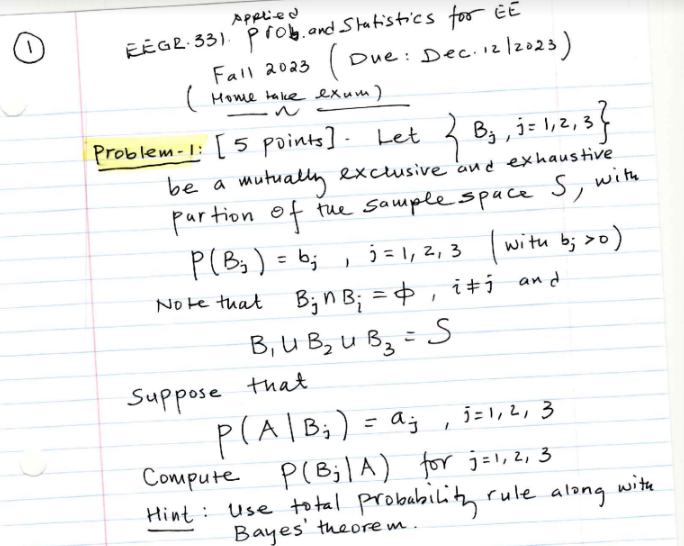 ①
Applied
EEGR.331. Prob. and Statistics for EE
Fall 2023 (Due: Dec. 12/2023)
(Home take exam)
Problem-1: [5 points]. Let { Bj, j = 1, 2, 3 }
be a mutually exclusive and exhaustive
partion of the sample space S, with
P(Bj) = bj , j = 1, 2, 3 (with bj > 0)
Note that Bj ∩ Bi = ϕ , i ≠ j and
B1 ∪ B2 ∪ B3 = S
Suppose that
P(A|Bj) = aj , j = 1, 2, 3
Compute P(Bj|A) for j = 1, 2, 3
Hint: Use total probability rule along with
Bayes' theorem.